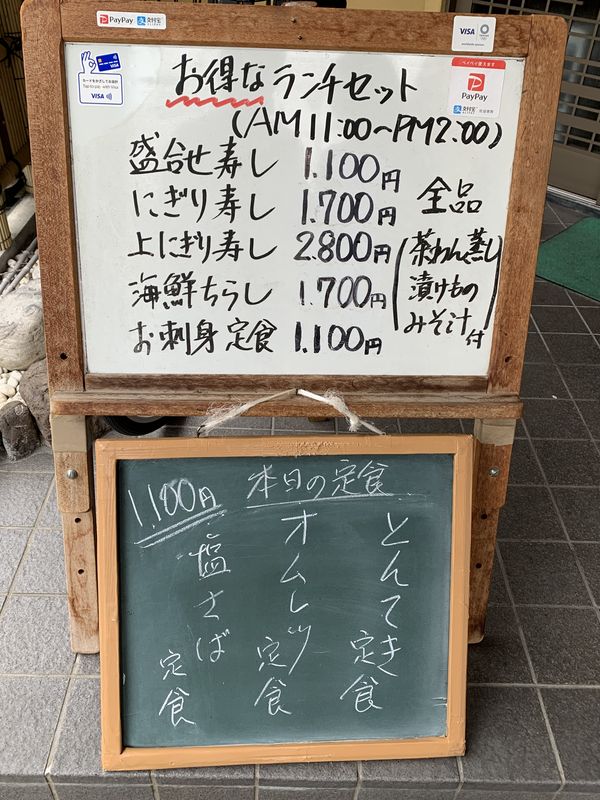 PayPay 支付宝
VISA
カードをかざしてお会計
Tap to pay with Visa
VISA
ペイペイ使えます
PayPay
支付宝
お得なランチセット
(AM11:00~PM2:00)
盛合せ寿し 1.100円
にぎり寿し 1.700円
上にぎり寿し 2.800円
海鮮ちらし 1.700円
お刺身定食 1.100円
全品
(茶わん蒸し
漬けもの
みそ汁付)
1.100円 本日の定食
とんてき定食
オムレツ定食
塩さば定食